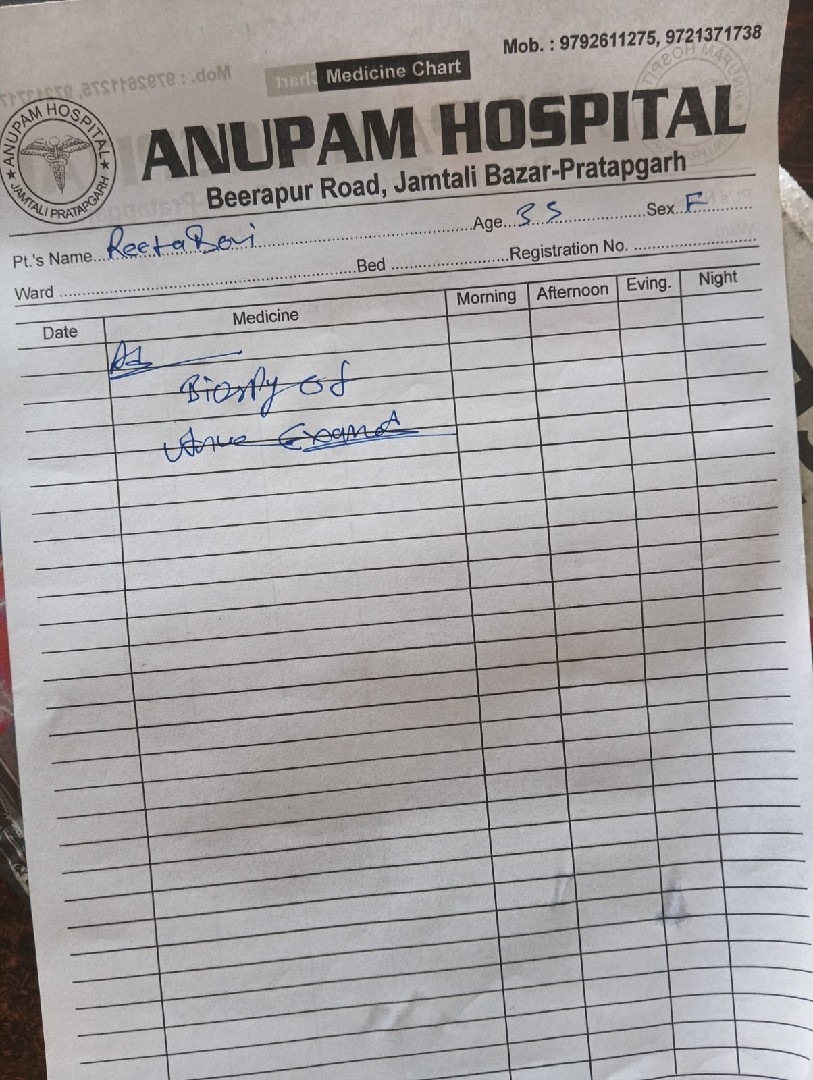 Mob. : 9792611275, 9721371738
Medicine Chart
ANUPAM HOSPITAL
JAMTALI PRATAPGARH
ANUPAM HOSPITAL
Beerapur Road, Jamtali Bazar-Pratapgarh
Pt.'s Name Reeta Devi Age 35 Sex F
Ward Bed Registration No.
Date Medicine Morning Afternoon Eving. Night
Biospy of